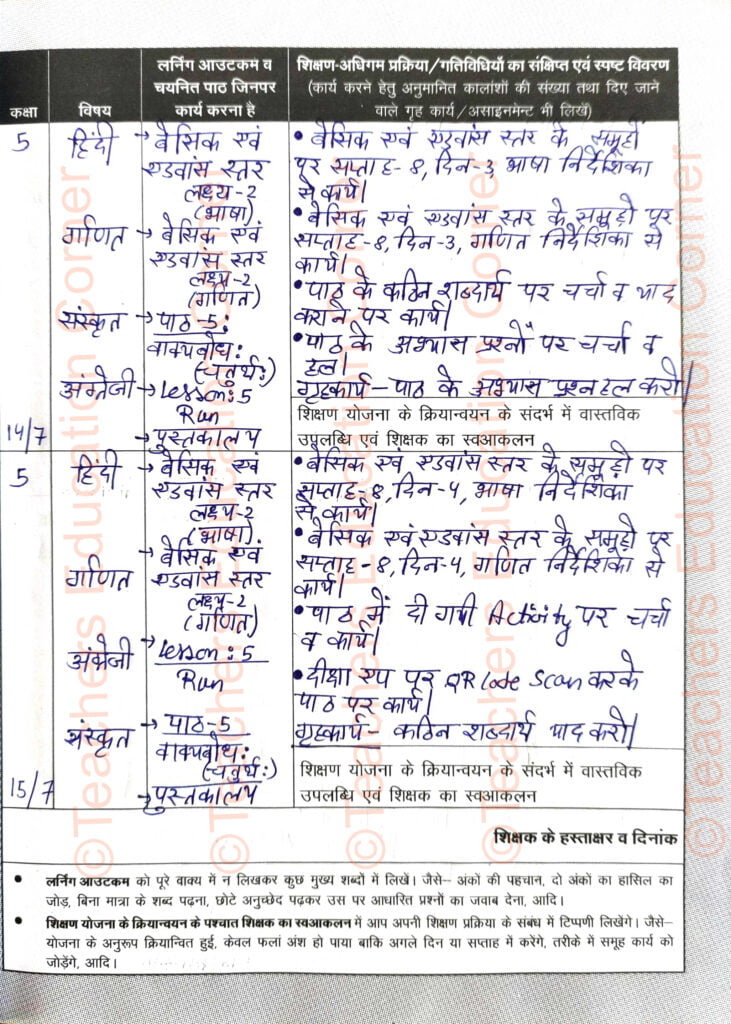 कक्षा
विषय
लर्निंग आउटकम व
चयनित पाठ जिनपर
कार्य करना है
शिक्षण-अधिगम प्रक्रिया/गतिविधियों का संक्षिप्त एवं स्पष्ट विवरण
(कार्य करने हेतु अनुमानित कालांशों की संख्या तथा दिए जाने
वाले गृह कार्य/असाइनमेंट भी लिखें)
5
14/7
हिंदी
गणित
संस्कृत
अंग्रेजी
→ बेसिक एवं
एडवांस स्तर
लक्ष्य-2
(भाषा)
→ बेसिक एवं
एडवांस स्तर
लक्ष्य-2
(गणित)
→ पाठ-5:
वाक्यबोध:
(चतुर्थ:)
→ Lesson:5
Run
→ पुस्तकालय
• बेसिक एवं एडवांस स्तर के समूहों
पर सप्ताह-8, दिन-3, भाषा निर्देशिका
से कार्य।
• बेसिक एवं एडवांस स्तर के समूहों पर
सप्ताह-8, दिन-3, गणित निर्देशिका से
कार्य।
• पाठ के कठिन शब्दार्थ पर चर्चा व याद
कराने पर कार्य।
• पाठ के अभ्यास प्रश्नों पर चर्चा व
हल।
गृहकार्य – पाठ के अभ्यास प्रश्न हल करो।
शिक्षण योजना के क्रियान्वयन के संदर्भ में वास्तविक
उपलब्धि एवं शिक्षक का स्वआकलन
5
15/7
हिंदी
गणित
अंग्रेजी
संस्कृत
→ बेसिक एवं
एडवांस स्तर
लक्ष्य-2
(भाषा)
→ बेसिक एवं
एडवांस स्तर
लक्ष्य-2
(गणित)
→ Lesson:5
Run
→ पाठ-5
वाक्यबोध:
(चतुर्थ:)
→ पुस्तकालय
• बेसिक एवं एडवांस स्तर के समूहों पर
सप्ताह-8, दिन-4, भाषा निर्देशिका
से कार्य।
• बेसिक एवं एडवांस स्तर के समूहों पर
सप्ताह-8, दिन-4, गणित निर्देशिका से
कार्य।
• पाठ में दी गयी Activity पर चर्चा
व कार्य।
• दीक्षा एप पर QR Code Scan करके
पाठ पर कार्य।
गृहकार्य – कठिन शब्दार्थ याद करो।
शिक्षण योजना के क्रियान्वयन के संदर्भ में वास्तविक
उपलब्धि एवं शिक्षक का स्वआकलन
शिक्षक के हस्ताक्षर व दिनांक
• लर्निंग आउटकम को पूरे वाक्य में न लिखकर कुछ मुख्य शब्दों में लिखें। जैसे– अंकों की पहचान, दो अंकों का हासिल का
जोड़, बिना मात्रा के शब्द पढ़ना, छोटे अनुच्छेद पढ़कर उस पर आधारित प्रश्नों का जवाब देना, आदि।
• शिक्षण योजना के क्रियान्वयन के पश्चात शिक्षक का स्वआकलन में आप अपनी शिक्षण प्रक्रिया के संबंध में टिप्पणी लिखेंगे। जैसे–
योजना के अनुरूप क्रियान्वित हुई, केवल फलां अंश हो पाया बाकि अगले दिन या सप्ताह में करेंगे, तरीके में समूह कार्य को
जोड़ेंगे, आदि।
©Teachers Education Corner
©Teachers Education Corner
©Teachers Education Corner
©Teachers Education Corner
©Teachers Education Corner